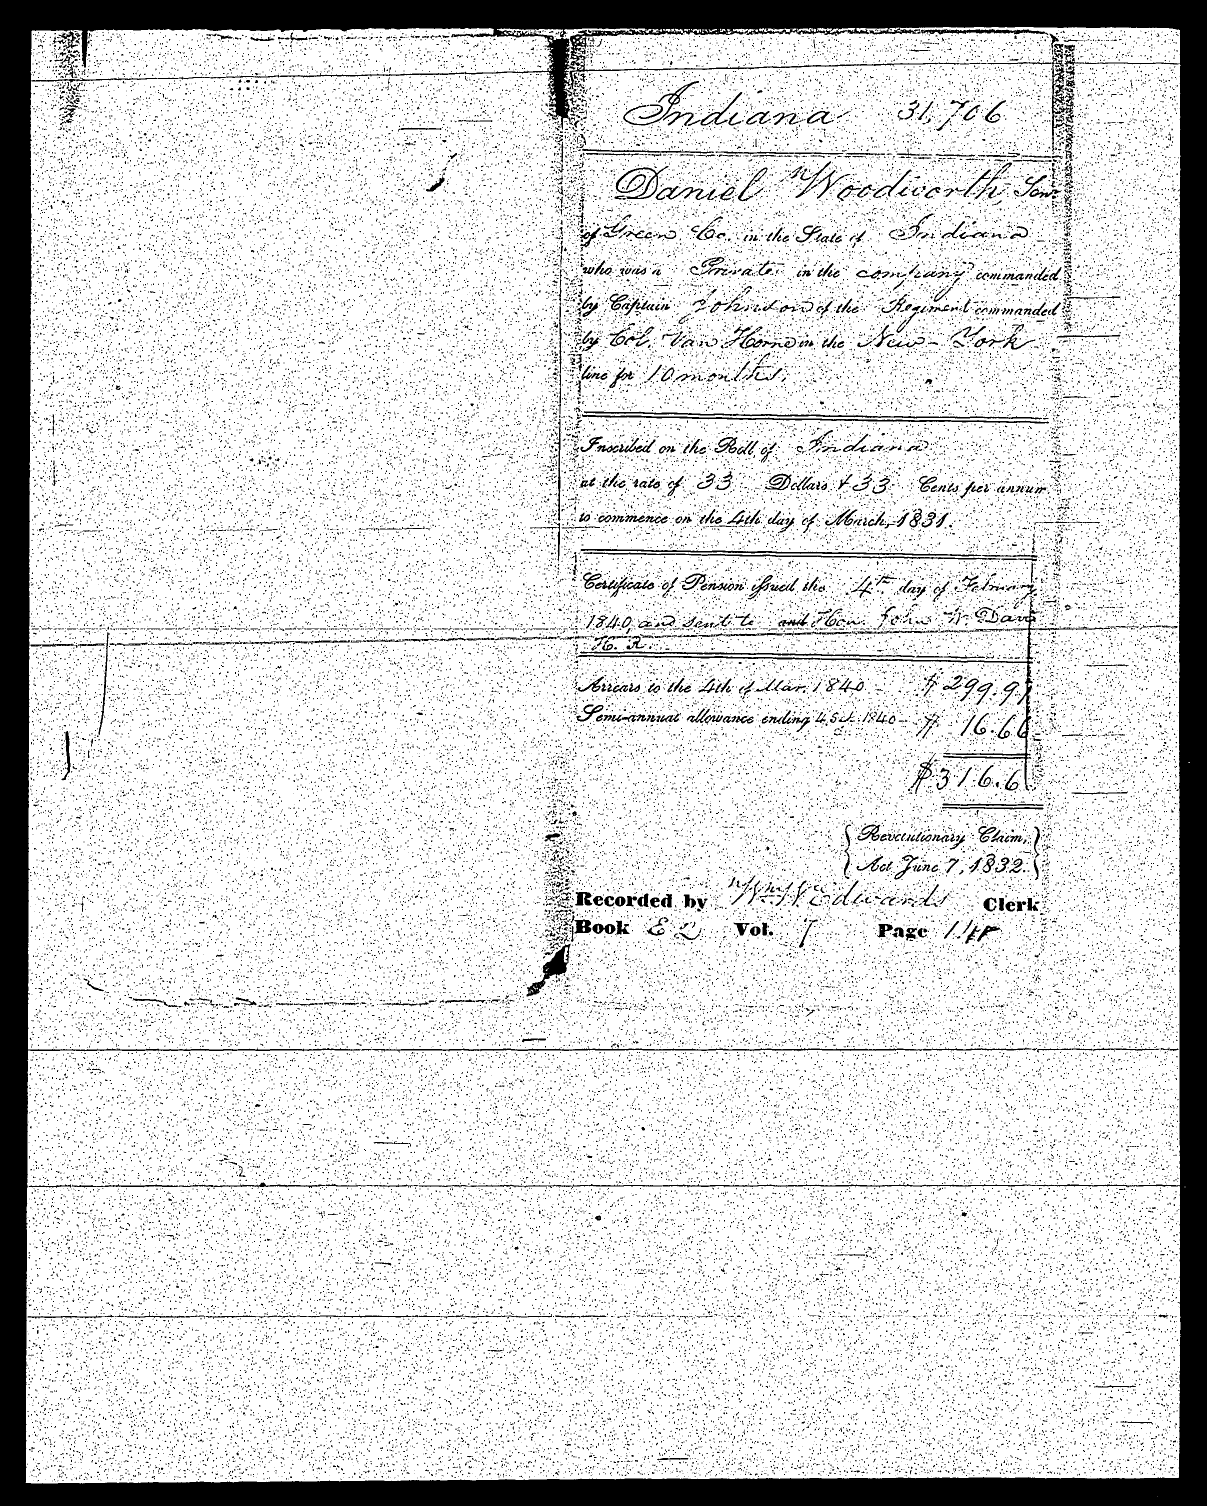 Indiana 31,706
Daniel Woodworth, Senr
of Green Co. in the State of Indiana
who was a Private in the company commanded
by Captain Johnson of the Regiment commanded
by Col. Van Horne in the New-York
line for 10 months.
Inscribed on the Roll of Indiana
at the rate of 33 Dollars & 33 Cents per annum
to commence on the 4th day of March, 1831.
Certificate of Pension issued the 4th day of February
1840, and sent to Hon. John W. Davis
H. R.
Arrears to the 4th of Mar. 1840 $299.97
Semi-annual allowance ending 4 Sept. 1840 $ 16.66
$316.6
Revolutionary Claim,
Act June 7, 1832.
Recorded by Edwards Clerk
Book E 2 Vol. 7 Page